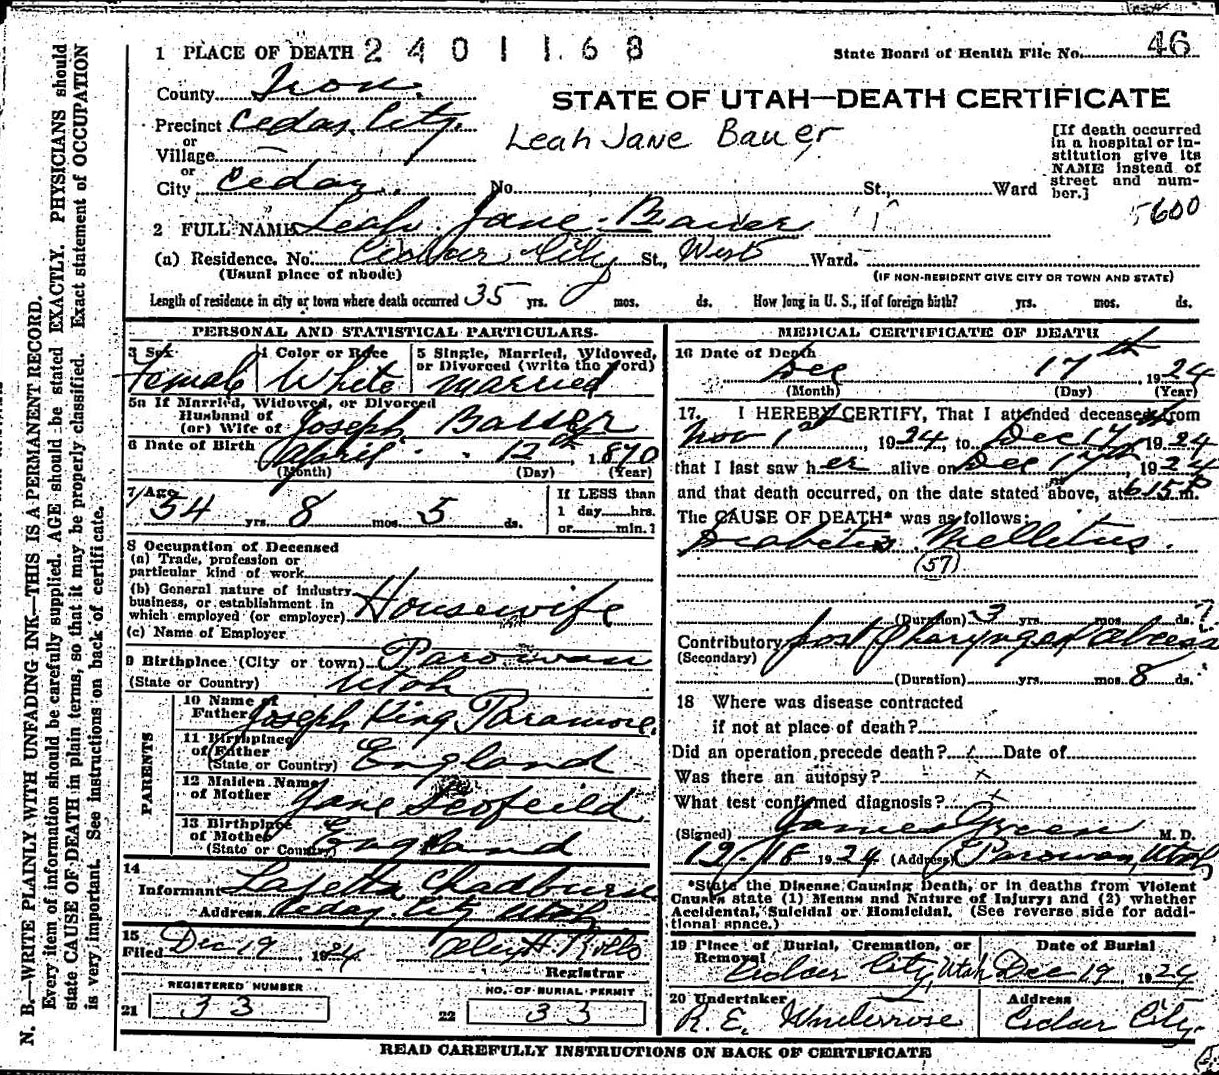 1 PLACE OF DEATH 2401168 State Board of Health File No. 46
County Iron.
STATE OF UTAH—DEATH CERTIFICATE
Precinct Cedar City.
or
Village
or
City Cedar. No. St., Ward
Leah Jane Bauer
[If death occurred in a hospital or institution give its NAME instead of street and number.]
5600
2 FULL NAME Leah Jane Bauer
(a) Residence. No. Cedar City St., West Ward.
(Usual place of abode) (IF NON-RESIDENT GIVE CITY OR TOWN AND STATE)
Length of residence in city or town where death occurred 35 yrs. 0 mos. ds. How long in U. S., if of foreign birth? yrs. mos. ds.
PERSONAL AND STATISTICAL PARTICULARS.
3 Sex Female
4 Color or Race White
5 Single, Married, Widowed, or Divorced (write the word) Married
5a If Married, Widowed, or Divorced
Husband of
(or) Wife of Joseph Bauer
6 Date of Birth April 12th, 1870
(Month) (Day) (Year)
7 Age 54 yrs. 8 mos. 5 ds.
If LESS than
1 day hrs.
or min.?
8 Occupation of Deceased
(a) Trade, profession or
particular kind of work
(b) General nature of industry,
business, or establishment in
which employed (or employer) Housewife
(c) Name of Employer
9 Birthplace (City or town) Parowan
(State or Country) Utah
PARENTS
10 Name of
Father Joseph King Paramore.
11 Birthplace
of Father
(State or Country) England
12 Maiden Name
of Mother Jane Scofeild
13 Birthplace
of Mother
(State or Country) England
14
Informant Chadburse
Address Cedar City Utah
15
Filed Dec 19, 1924
Registrar
REGISTERED NUMBER
21 33
NO. OF BURIAL PERMIT
22 33
MEDICAL CERTIFICATE OF DEATH
16 Date of Death
Dec 17th, 1924
(Month) (Day) (Year)
17. I HEREBY CERTIFY, That I attended deceased from
Nov 1st, 1924, to Dec 17th, 1924
that I last saw her alive on Dec 17th, 1924
and that death occurred, on the date stated above, at 615P m.
The CAUSE OF DEATH* was as follows:
Diabetis Mellitus.
(57)
(Duration) 3 yrs. mos. ds.
Contributory post Pharyngeal abcess
(Secondary)
(Duration) yrs. mos. 8 ds.
18 Where was disease contracted
if not at place of death?
Did an operation precede death? Date of
Was there an autopsy? x
What test confirmed diagnosis? x
(Signed) James Green M. D.
12/18 1924 (Address) Parowan, Utah
*State the Disease Causing Death, or in deaths from Violent
Causes state (1) Means and Nature of Injury; and (2) whether
Accidental, Suicidal or Homicidal. (See reverse side for additional space.)
19 Place of Burial, Cremation, or Removal Cedar City, Utah
Date of Burial Dec 19, 1924
20 Undertaker
R. E.
Address
Cedar City.
READ CAREFULLY INSTRUCTIONS ON BACK OF CERTIFICATE
N. B.—WRITE PLAINLY WITH UNFADING INK—THIS IS A PERMANENT RECORD.
Every item of information should be carefully supplied. AGE should be stated EXACTLY. PHYSICIANS should
state CAUSE OF DEATH in plain terms, so that it may be properly classified. Exact statement of OCCUPATION
is very important. See instructions on back of certificate.